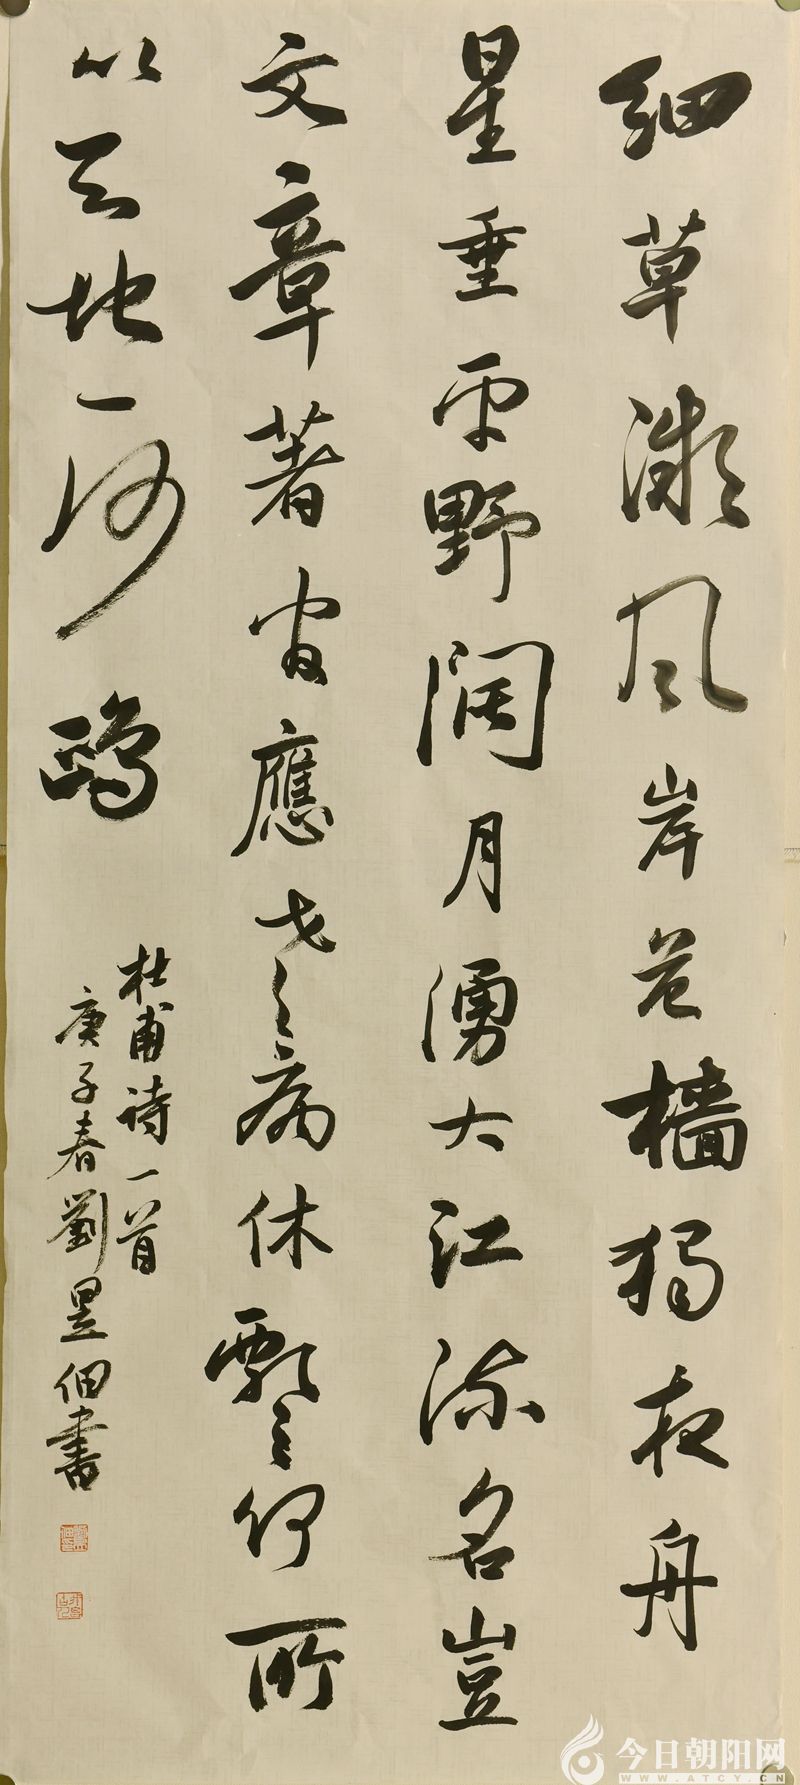 細草微風岸危檣獨夜舟
星垂平野闊月湧大江流名豈
文章著官應老病休飄飄何所
似天地一沙鷗
杜甫詩一首
庚子春劉昱佃書
今日朝阳网
WWW.ATCY.CN